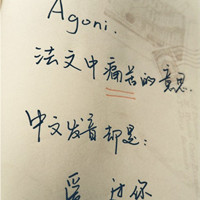 Agoni.
法文中痛苦的意思.
中文发音却是:
爱 过你